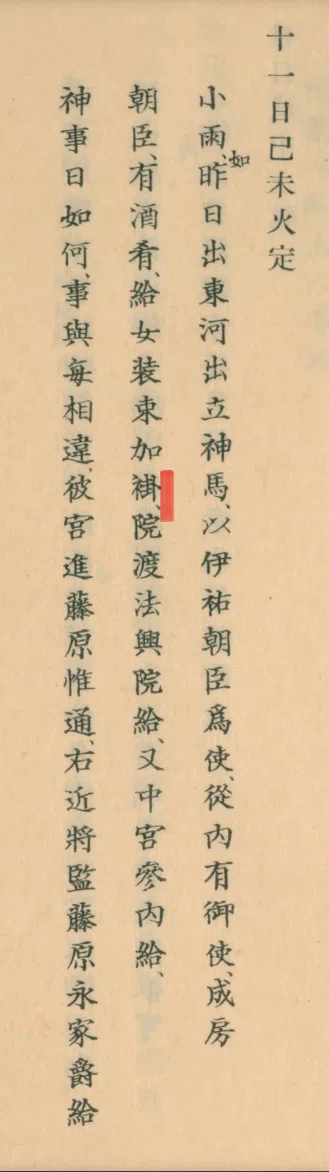 十一日己未火定
小雨、如昨日出東河出立神馬、以伊祐朝臣爲使、從内有御使、成房
朝臣、有酒肴、給女装束加褂、院渡法興院給、又中宮參内給、
神事日如何、事與每相違、彼宮進藤原惟通、右近將監藤原永家爵給